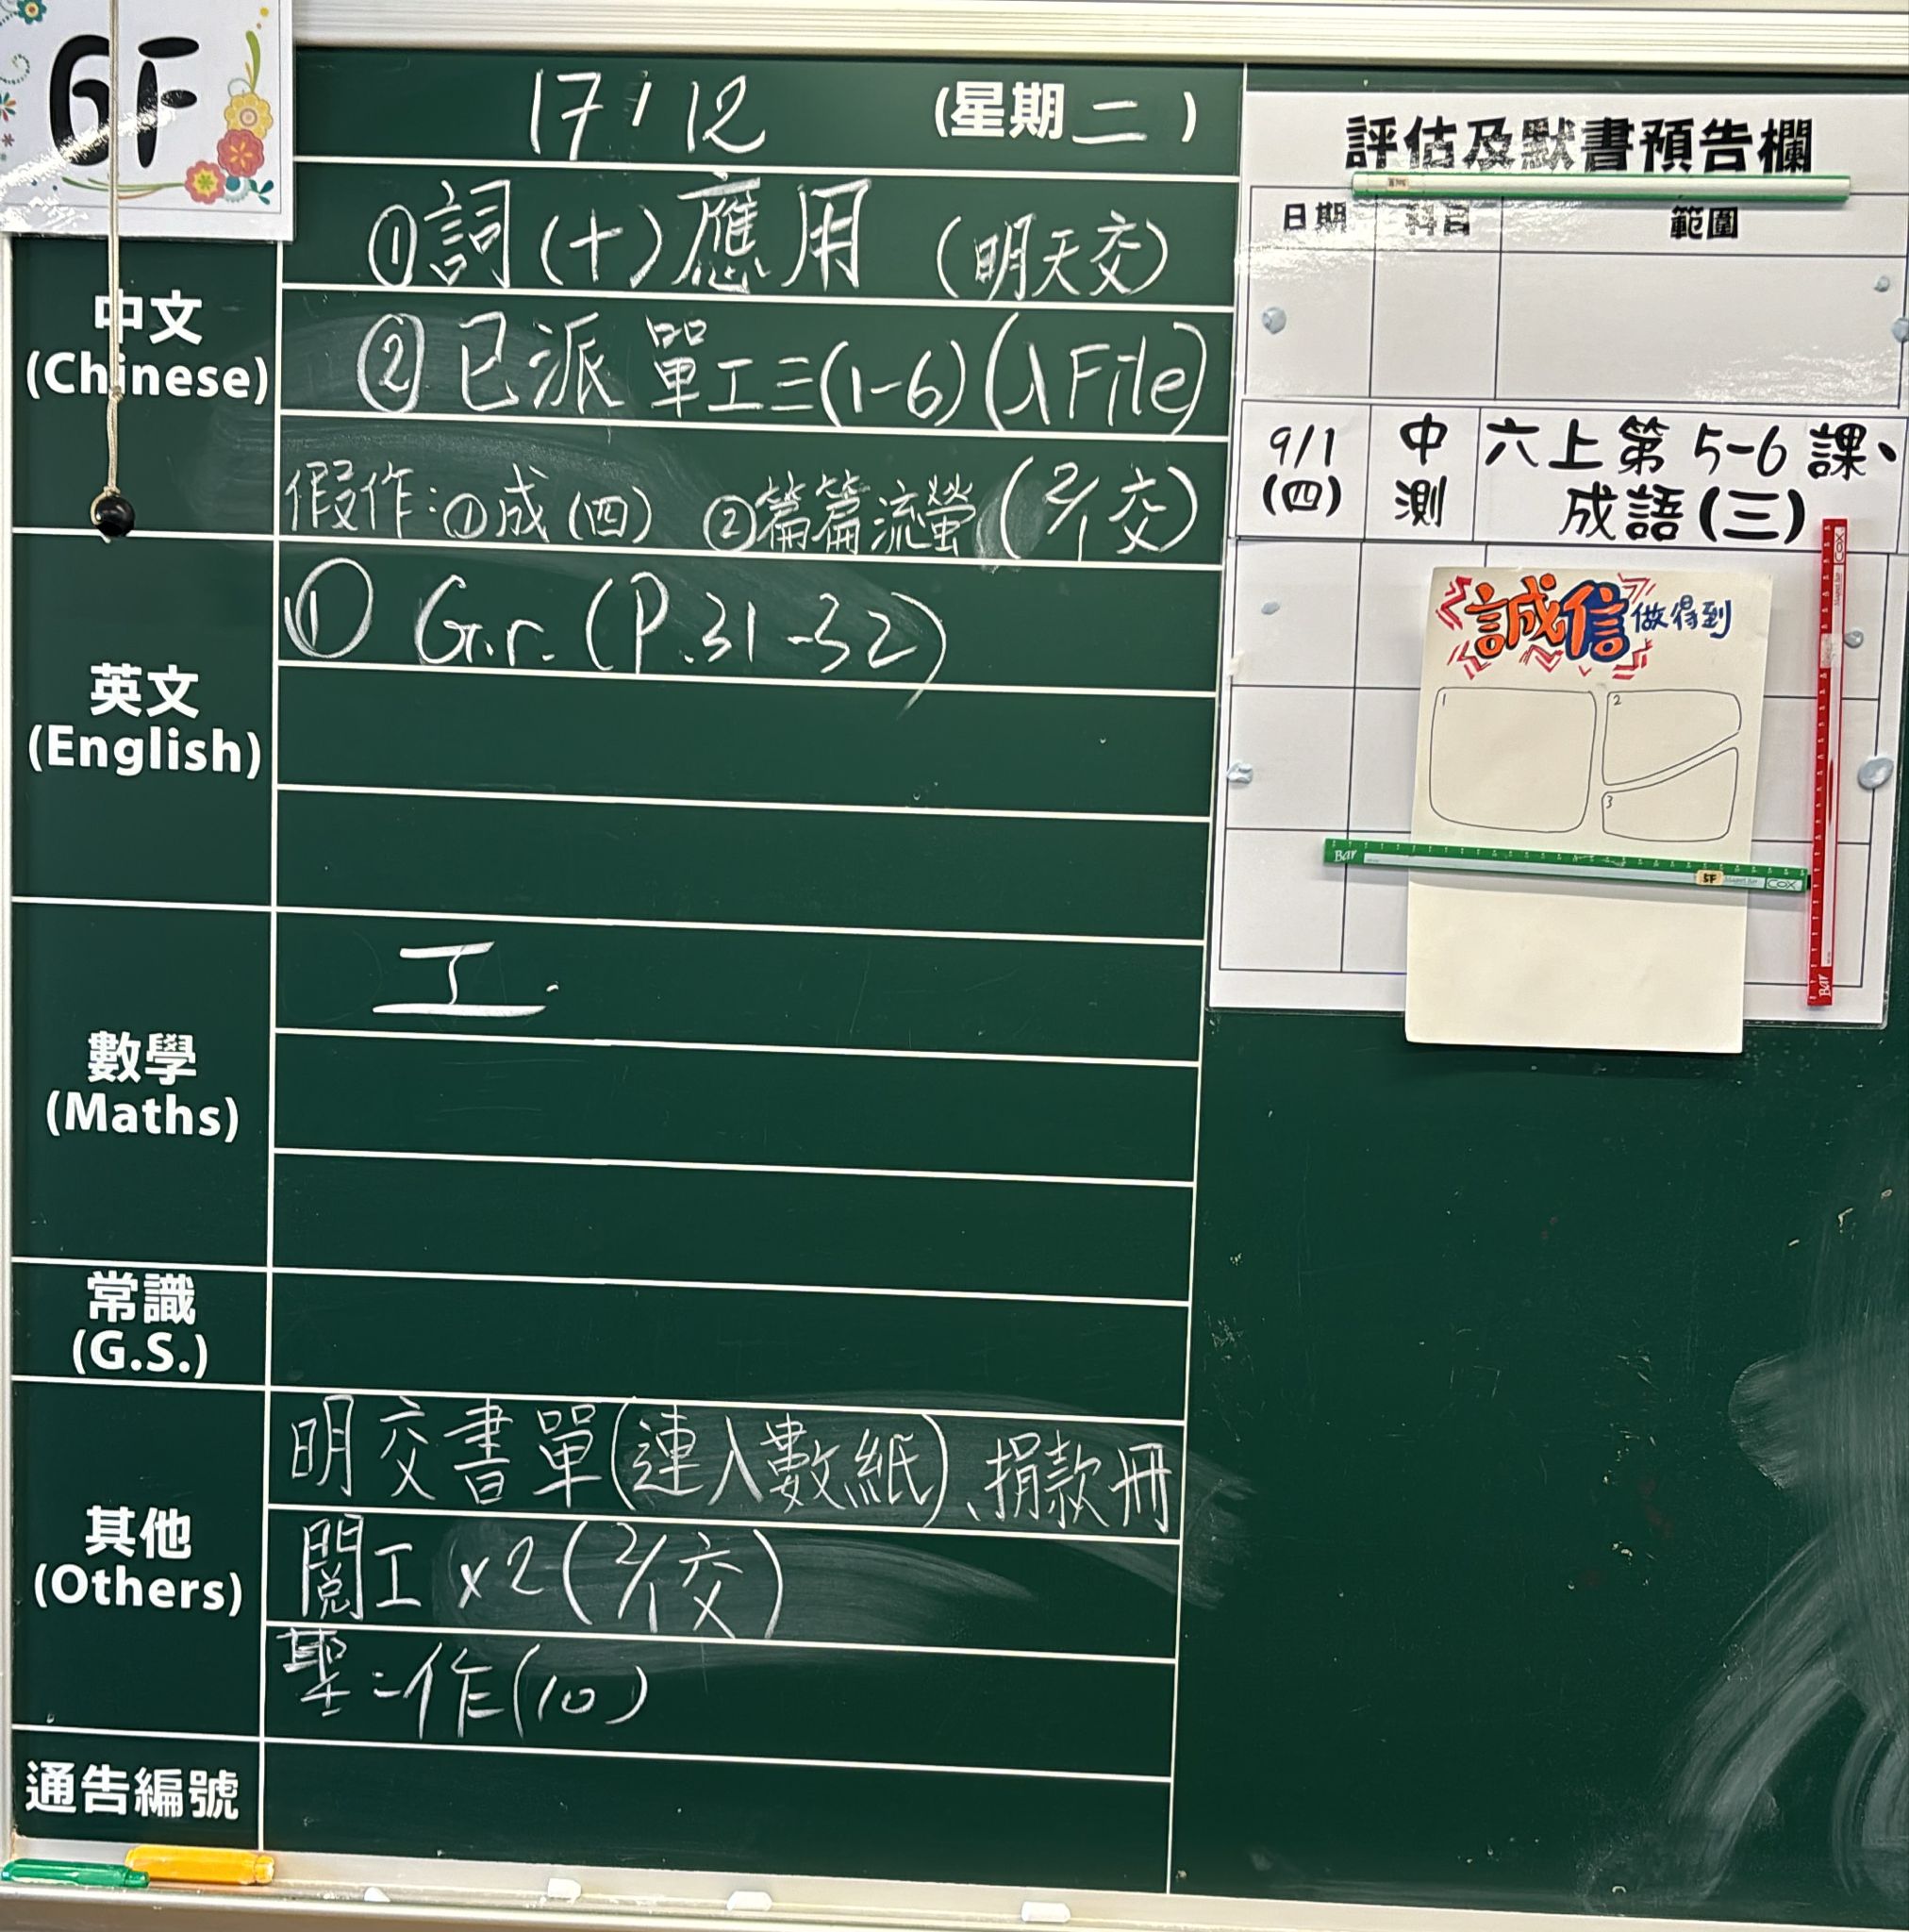 6F
17/12 (星期二)
中文
(Chinese)
①詞(十)應用 (明天交)
②已派 單工三(1-6)(入File)
假作:①成(四) ②篇篇流螢(2/1交)
英文
(English)
① Gr. (P.31-32)
數學
(Maths)
工.
常識
(G.S.)
其他
(Others)
明交書單(連入數紙)、捐款冊
閱工×2(2/1交)
聖:作(10)
通告編號
評估及默書預告欄
日期 科目 範圍
9/1
(四)
中
測
六上第5-6課、
成語(三)
誠信做得到
1
2
3
Bar
5F
COX
COX
Bar